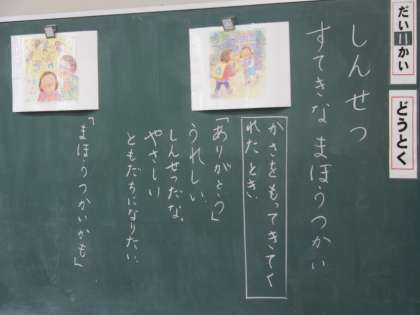 だい11かい
どうとく
しんせつ
すてきな まほうつかい
かさをもってきてく
れたとき
「ありがとう」
うれしい
しんせつだな。
やさしい
ともだちになりたい
「まほうつかいかも」